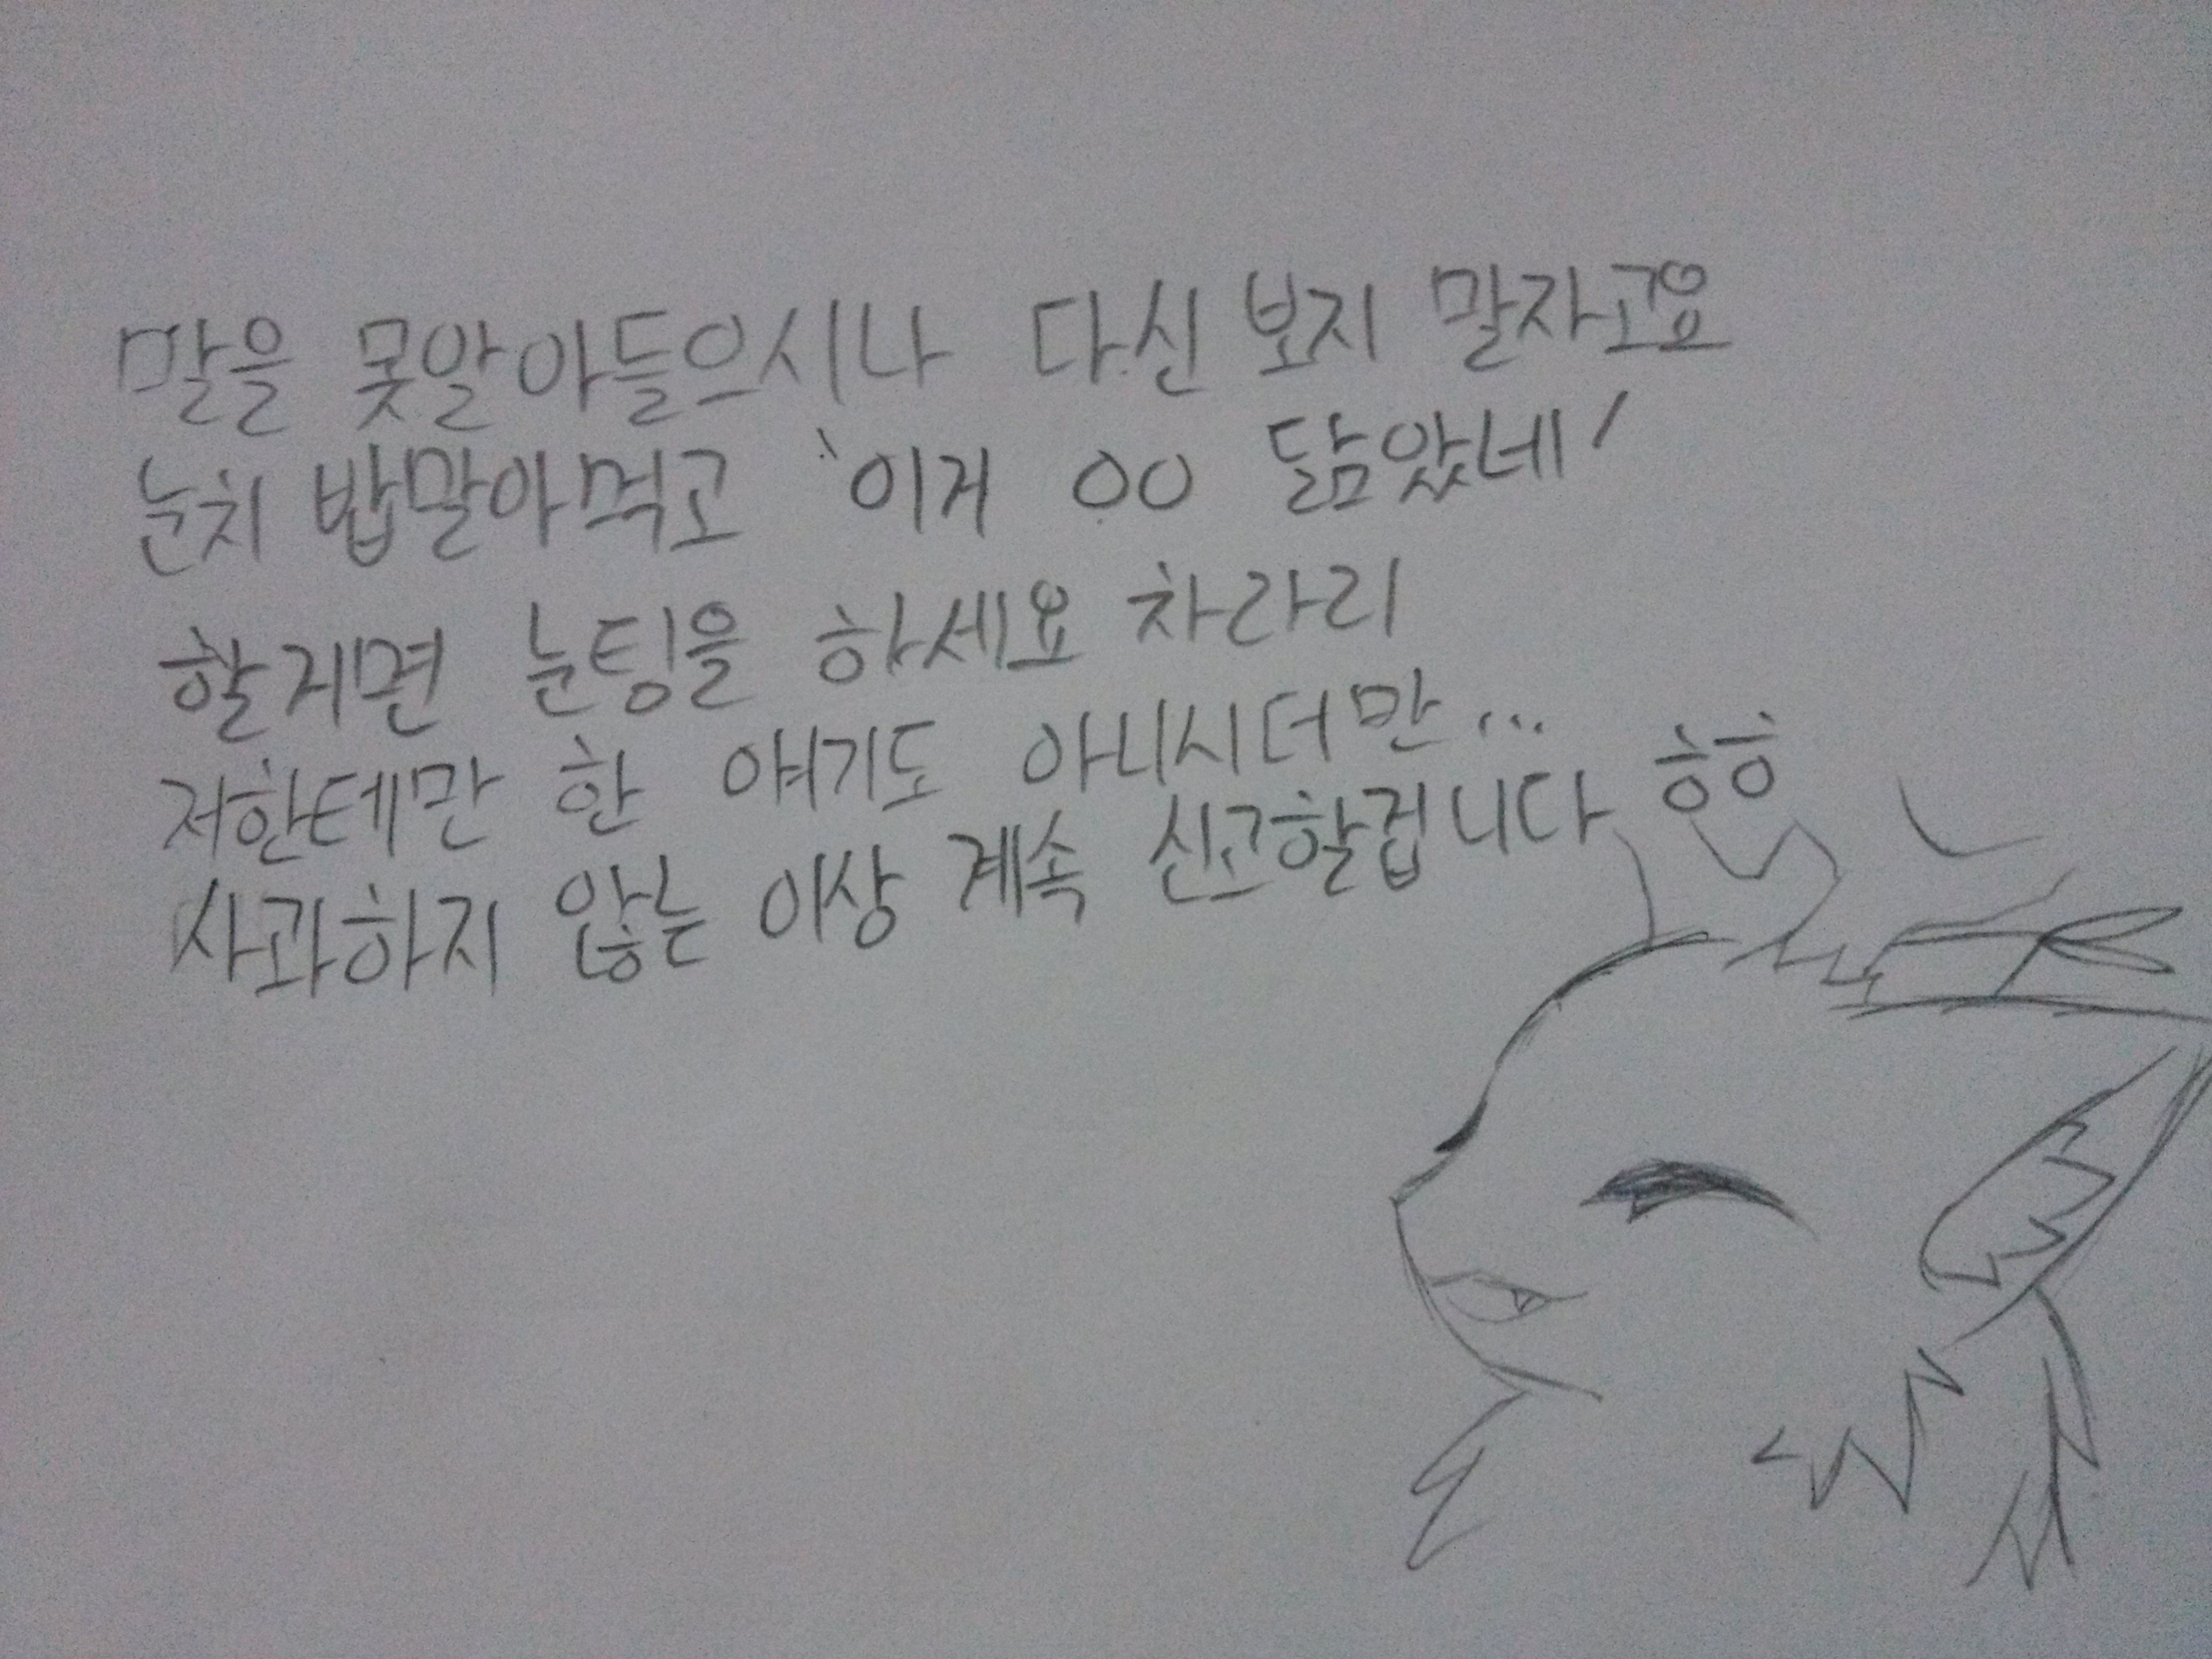 말을 못알아들으시나 다신 보지 말자고요
눈치 밥말아먹고 '이거 00 닮았네'
할거면 눈팅을 하세요 차라리
저한테만 한 얘기도 아니시더만...
사과하지 않는 이상 계속 신고할겁니다 흥흥